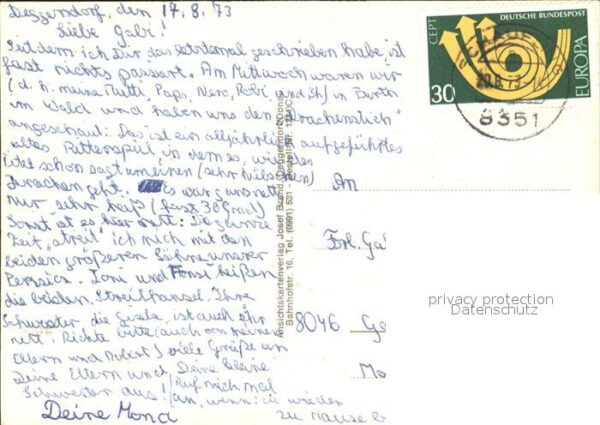 Deggendorf, den 17.8.73
Liebe Gabi!
Seitdem ich Dir das letztemal geschrieben habe, ist
fast nichts passiert. Am Mittwoch waren wir
(d. h. meine Mutti, Paps, Nero, Robi und ich) in Furth
im Wald und haben uns den "Drachenstich"
angeschaut. Das ist ein alljährlich aufgeführtes
altes Ritterspiel in dem es, wie der
Titel schon sagt um einen (sehr
Drachen geht. Es war ganz nett
nur sehr heiß (fast 30 Grad)
Sonst ist es hier nett. Die ganze
Zeit "streit" ich mich mit den
beiden größeren Söhne unserer
Toni und Fonsi heißen
die beiden Streithansel. Ihre
Schwester, die Gisela, ist auch sehr
nett. Richte bitte (auch von meinen
Eltern und Robert) viele Grüße an
Deine Eltern und Deine kleine
Schwester aus! (Ruf mich mal
an, wenn du wieder
zu Hause b
Deine Mona
An
Frl. Ga
8046 Ga
Ansichtskartenverlag Josef Brumd, Deggendorf/Donau
Bahnhofstr. 16, Tel. (0991) 531 - Bestell-Nr.
CEPT
DEUTSCHE BUNDESPOST
EUROPA
30
8351
privacy protection
Datenschutz